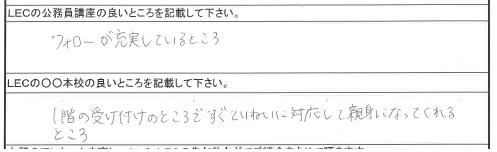 LECの公務員講座の良いところを記載して下さい。
フォローが充実しているところ
LECの〇〇本校の良いところを記載して下さい。
1階の受け付けのところですぐていねいに対応して親身になってくれる
ところ